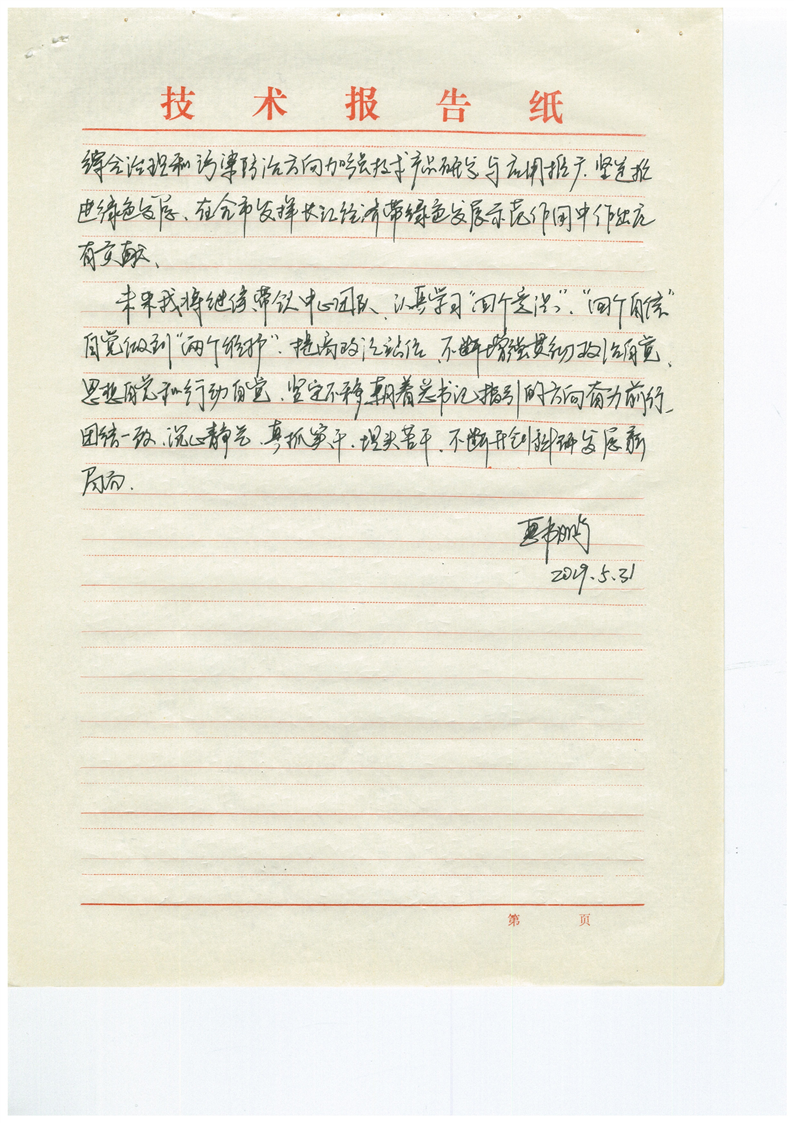 技术报告纸
综合治理和污染防治方向加强技术产品研发与应用推广,坚定推
进绿色发展、在全市发挥长江经济带绿色发展示范作用中作出应
有贡献、
未来我将继续带领中心团队、认真学习“四个意识”、“四个自信”
自觉做到“两个维护”、提高政治站位、不断增强贯彻政治自觉、
思想自觉和行动自觉、坚定不移朝着总书记指引的方向奋力前行、
团结一致、沉心静气、真抓实干、埋头苦干、不断开创科研发展新
局面.
2019.5.31
第 页